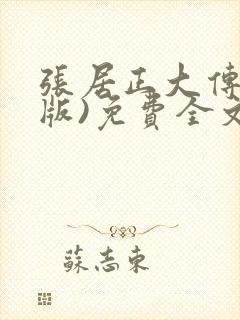 張居正大傳
版)免費全文
蘇志東